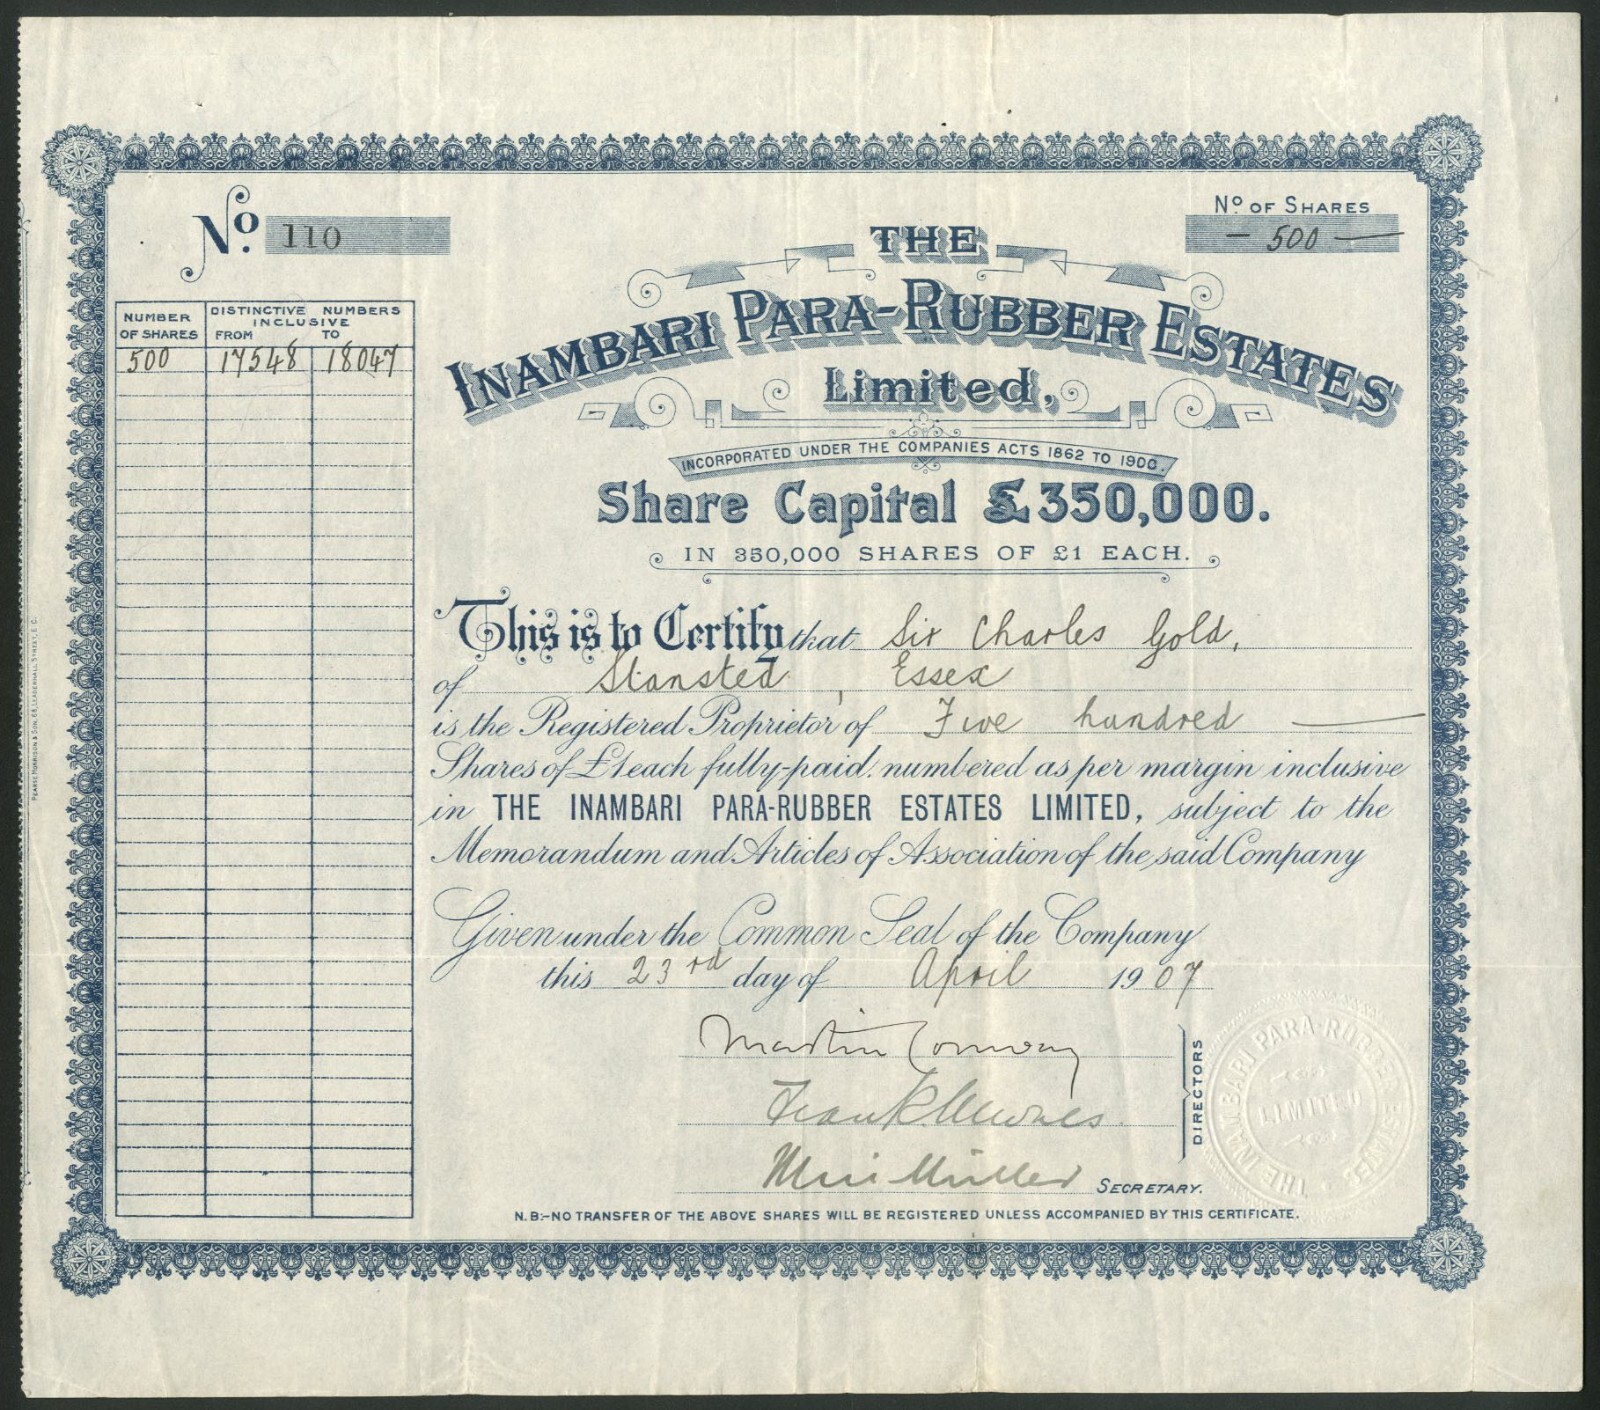 No. 110
No OF SHARES
— 500 —
THE
INAMBARI PARA-RUBBER ESTATES
Limited,
INCORPORATED UNDER THE COMPANIES ACTS 1862 TO 1900.
Share Capital £350,000.
IN 350,000 SHARES OF £1 EACH.
NUMBER OF SHARES
DISTINCTIVE NUMBERS
INCLUSIVE
FROM TO
500 17548 18047
This is to Certify that Sir Charles Gold,
of Stansted, Essex
is the Registered Proprietor of Five hundred —
Shares of £1 each fully-paid, numbered as per margin inclusive
in THE INAMBARI PARA-RUBBER ESTATES LIMITED, subject to the
Memorandum and Articles of Association of the said Company
Given under the Common Seal of the Company
this 23rd day of April 1907
Martin Conway
Frank Newnes
DIRECTORS
Müller SECRETARY.
N.B:-NO TRANSFER OF THE ABOVE SHARES WILL BE REGISTERED UNLESS ACCOMPANIED BY THIS CERTIFICATE.
THE INAMBARI PARA-RUBBER ESTATES
LIMITED
PEARSE MORRISON & SON, 68, LEADENHALL STREET, E.C.